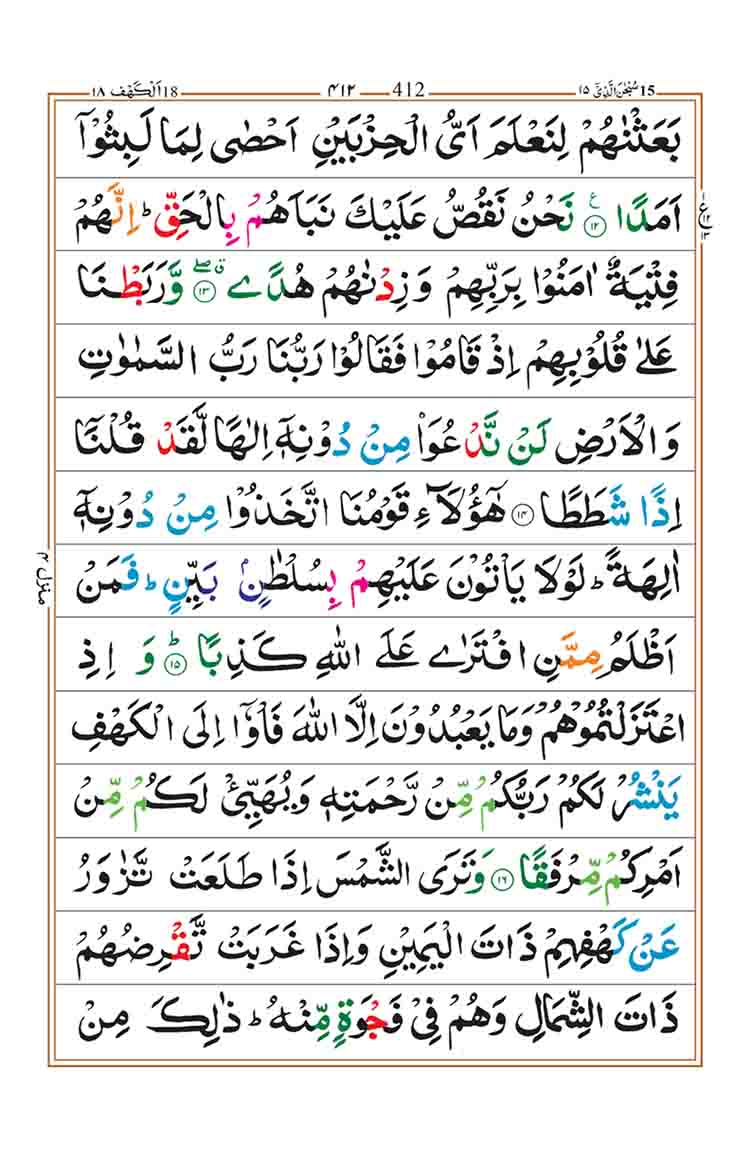 15 سُبۡحٰنَ الَّذِیۡۤ ١٥ 412 ٤١٢ 18 اَلۡكَهۡف ١٨
بَعَثۡنٰهُمۡ لِنَعۡلَمَ اَىُّ الۡحِزۡبَيۡنِ اَحۡصٰى لِمَا لَبِثُوۡۤا
اَمَدًا ۱۲ ع نَحۡنُ نَقُصُّ عَلَيۡكَ نَبَاَهُمۡ بِالۡحَقِّ‌ؕ اِنَّهُمۡ
فِتۡيَةٌ اٰمَنُوۡا بِرَبِّهِمۡ وَزِدۡنٰهُمۡ هُدًى ۖ ق ۱۳ وَّرَبَطۡنَا
عَلٰى قُلُوۡبِهِمۡ اِذۡ قَامُوۡا فَقَالُوۡا رَبُّنَا رَبُّ السَّمٰوٰتِ
وَالۡاَرۡضِ لَنۡ نَّدۡعُوَا۟ مِنۡ دُوۡنِهٖۤ اِلٰهًا‌ لَّقَدۡ قُلۡنَاۤ
اِذًا شَطَطًا ۱۴ هٰٓؤُلَاۤءِ قَوۡمُنَا اتَّخَذُوۡا مِنۡ دُوۡنِهٖۤ
اٰلِهَةً‌ ؕ لَوۡلَا يَاۡتُوۡنَ عَلَيۡهِمۡ بِسُلۡطٰنٍۢ بَيِّنٍ‌ ؕ فَمَنۡ
اَظۡلَمُ مِمَّنِ افۡتَرٰى عَلَى اللّٰهِ كَذِبًا ؕ ۱۵ وَ اِذِ
اعۡتَزَلۡتُمُوۡهُمۡ وَمَا يَعۡبُدُوۡنَ اِلَّا اللّٰهَ فَاۡوٗۤا اِلَى الۡكَهۡفِ
يَنۡشُرۡ لَكُمۡ رَبُّكُمۡ مِّنۡ رَّحۡمَتِهٖ وَيُهَيِّئۡ لَكُمۡ مِّنۡ
اَمۡرِكُمۡ مِّرۡفَقًا ۱۶ وَتَرَى الشَّمۡسَ اِذَا طَلَعَتۡ تَّزٰوَرُ
عَنۡ كَهۡفِهِمۡ ذَاتَ الۡيَمِيۡنِ وَاِذَا غَرَبَتۡ تَّقۡرِضُهُمۡ
ذَاتَ الشِّمَالِ وَهُمۡ فِىۡ فَجۡوَةٍ مِّنۡهُ‌ ؕ ذٰ لِكَ مِنۡ
منزل ٤